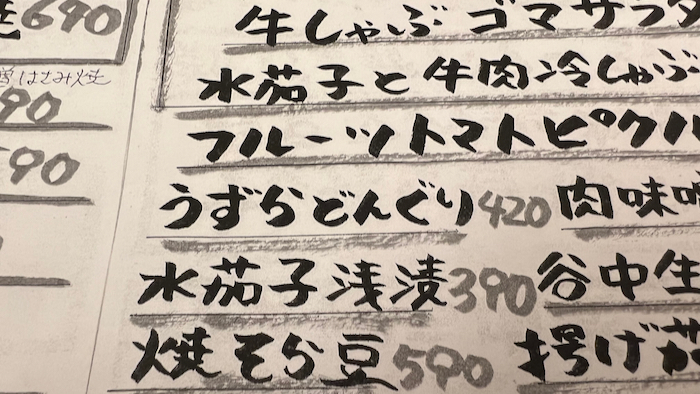 焼690
はさみ焼
90
590
牛しゃぶゴマサラダ
水茄子と牛肉冷しゃぶ
フルーツトマトピクル
うずらどんぐり420 肉味
水茄子浅漬390 谷中生
焼そら豆590 揚げ